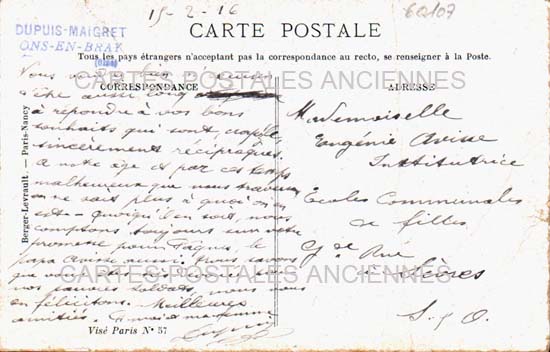 15-2-16
6Q107
CARTE POSTALE
DUPUIS-MAIGRET
ONS-EN-BRAY
(OISE)
Tous les pays étrangers n'acceptant pas la correspondance au recto, se renseigner à la Poste.
CORRESPONDANCE
ADRESSE
Berger-Levrault. — Paris-Nancy
Vous
être aussi long
à répondre à vos bons
souhaits qui sont,
sincèrement réciproques.
A notre âge et par ces temps
malheureux que nous
on ne sait plus à quoi on en
est — quoiqu'il en soit, nous
comptons toujours sur votre
promesse pour Pâques, le
papa Avisse aussi. Nous savons
que vous
nos soldats, nous vous
en félicitons. Meilleures
amitiés.
Mademoiselle
Eugénie Avisse
Institutrice
Ecoles Communales
de filles
Gde Rue
Sèvres
S. & O.
CARTES POSTALES ANCIENNES
CARTES POSTALES ANCIENNES
Visé Paris N° 57